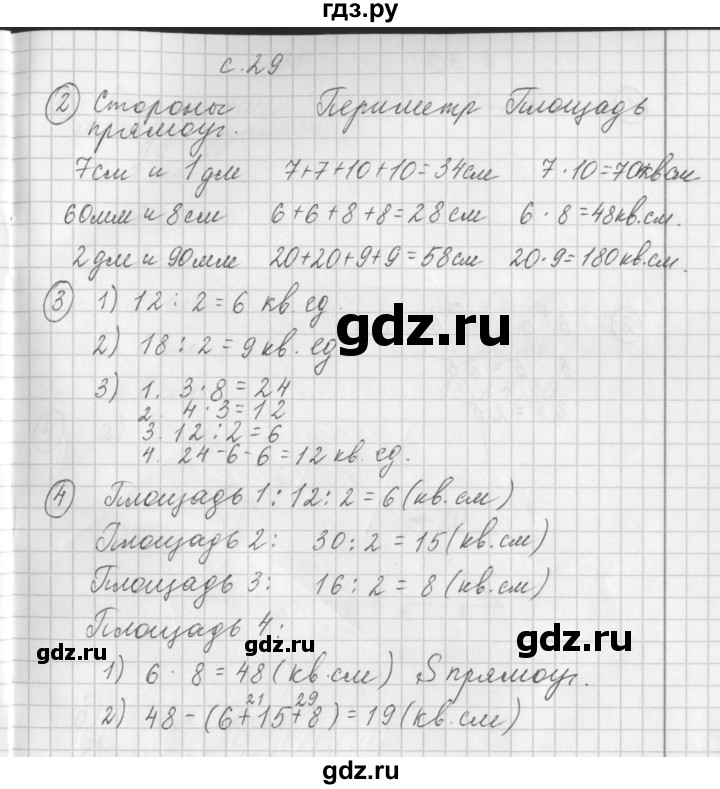 гдз.ру
с. 29
2 Стороны прямоуг. Периметр Площадь
7см и 1дм 7+7+10+10=34см 7·10=70квсм
60мм и 8см 6+6+8+8=28см 6·8=48кв.см.
2дм и 90мм 20+20+9+9=58см 20·9=180кв.см.
3 1) 12:2=6 кв. ед.
gdz.ru
2) 18:2=9кв. ед
3) 1. 3·8=24
2. 4·3=12
3. 12:2=6
4. 24-6-6=12кв. ед.
4 Площадь 1: 12:2=6(кв.см)
Площадь 2: 30:2=15(кв.см)
Площадь 3: 16:2=8(кв.см)
Площадь 4:
gdz.ru gdz.ru
1) 6·8=48(кв.см) Sпрямоуг.
21 29
2) 48-(6+15+8)=19(кв.см)
gdz.ru